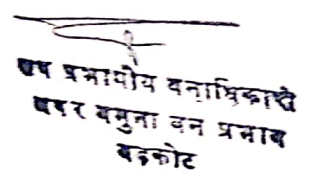 उप प्रभागीय वनाधिकारी
अपर यमुना वन प्रभाग
बड़कोट